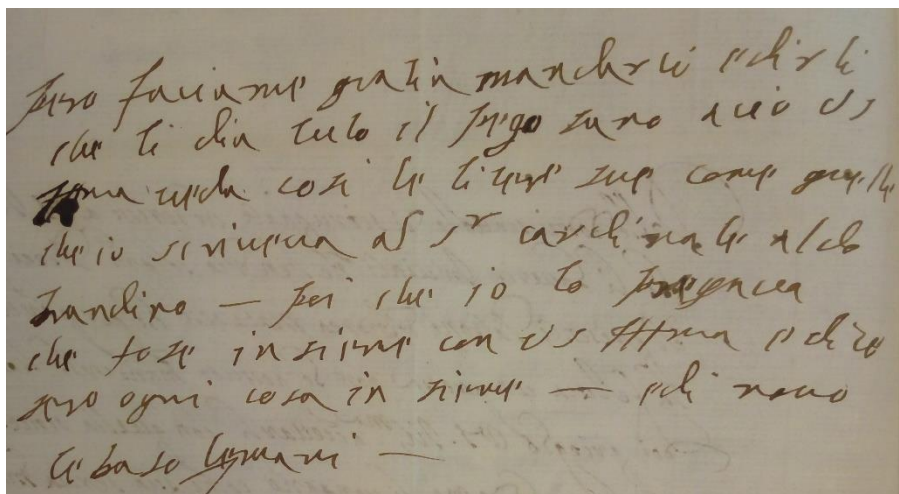 pero faciame gratia mandarli e dirli
che li dia tuto il piego sano acio vs
Illma veda cosi le litere sue come quelle
che io scriveva al sr cardinale aldo
brandino — per che io lo pregava
che fose insieme con vs Illma e dice
sero ogni cosa in sieme — e di novo
le baso le mani —